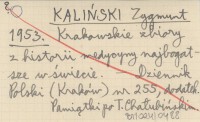 KALIŃSKI Zygmunt
1953. Krakowskie zbiory
z historii medycyny najbogat-
sze w świecie. Dziennik
Polski (Kraków) nr 255, dodatek.
Pamiątki po T. Chałubińskim